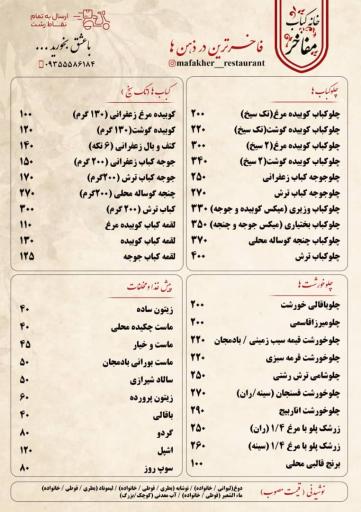 خانه کباب
مفاخر
فاخرترین در ذهن ها
mafakher__restaurant@
ارسال به تمام
نقـــاط رشت
با عشق بخورید ...
۰۹۳۵۵۵۸۶۱۸۴
چلوکباب ها
چلوکباب کوبیده مرغ(تک سیخ) ۲۰۰
چلوکباب کوبیده گوشت(تک سیخ) ۲۲۰
چلوکباب کوبیده مرغ(۲ سیخ) ۳۰۰
چلوکباب کوبیده گوشت(۲ سیخ) ۳۴۰
چلوجوجه کباب زعفرانی ۲۵۰
چلوجوجه کباب ترش ۲۷۰
چلوکباب وزیری (میکس کوبیده و جوجه) ۳۳۰
چلوکباب بختیاری (میکس جوجه و چنجه) ۳۵۰
چلوکباب چنجه گوساله محلی ۳۷۰
چلوکباب ترش ۴۰۰
کباب ها (تک سیخ)
کوبیده مرغ زعفرانی (۱۳۰ گرم) ۱۰۰
کوبیده گوشت(۱۳۰ گرم) ۱۲۰
کتف و بال زعفرانی (۶ تکه) ۱۴۰
جوجه کباب زعفرانی (۲۰۰ گرم) ۱۵۰
جوجه کباب ترش (۲۰۰ گرم) ۱۷۰
چنجه گوساله محلی (۲۰۰گرم) ۲۷۰
کباب ترش (۲۰۰ گرم) ۳۰۰
لقمه کباب مرغ ۱۱۰
لقمه کباب کوبیده ۱۳۰
لقمه کباب جوجه ۱۲۵
چلوخورشت ها
چلوباقالی خورشت ۲۰۰
چلومیرزاقاسمی ۲۰۰
چلوخورشت قیمه سیب زمینی / بادمجان ۲۲۰
چلوخورشت قرمه سبزی ۲۲۰
چلوشامی ترش رشتی ۲۵۰
چلوخورشت فسنجان (سینه/ران) ۲۷۰
چلوخورشت اناربیج ۲۹۰
زرشک پلو با مرغ ۱/۴ (ران) ۲۵۰
زرشک پلو با مرغ ۱/۴ (سینه) ۲۶۰
برنج قالبی محلی ۱۰۰
پیش غذا و مخلفات
زیتون ساده ۴۰
ماست چکیده محلی ۴۰
ماست و خیار ۴۵
ماست بورانی بادمجان ۵۰
سالاد شیرازی ۵۰
زیتون پرورده ۶۰
باقالی ۴۰
گردو ۸۰
اشپل ۱۲۰
سوپ روز ۸۰
نوشیدنی (قیمت مصوب)
دوغ(لیوانی / خانواده) / نوشابه (بطری / قوطی / خانواده) / لیموناد (بطری / قوطی / خانواده)
ماء الشعیر (قوطی / خانواده) / آب معدنی (کوچک/بزرگ)